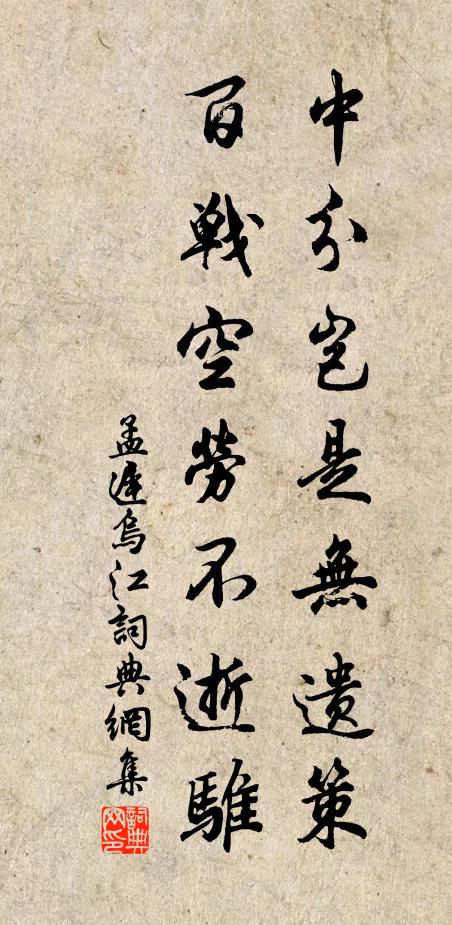 中分豈是無遺策
百戰空勞不逝騅
孟遲烏江詞典網集
詞典網印